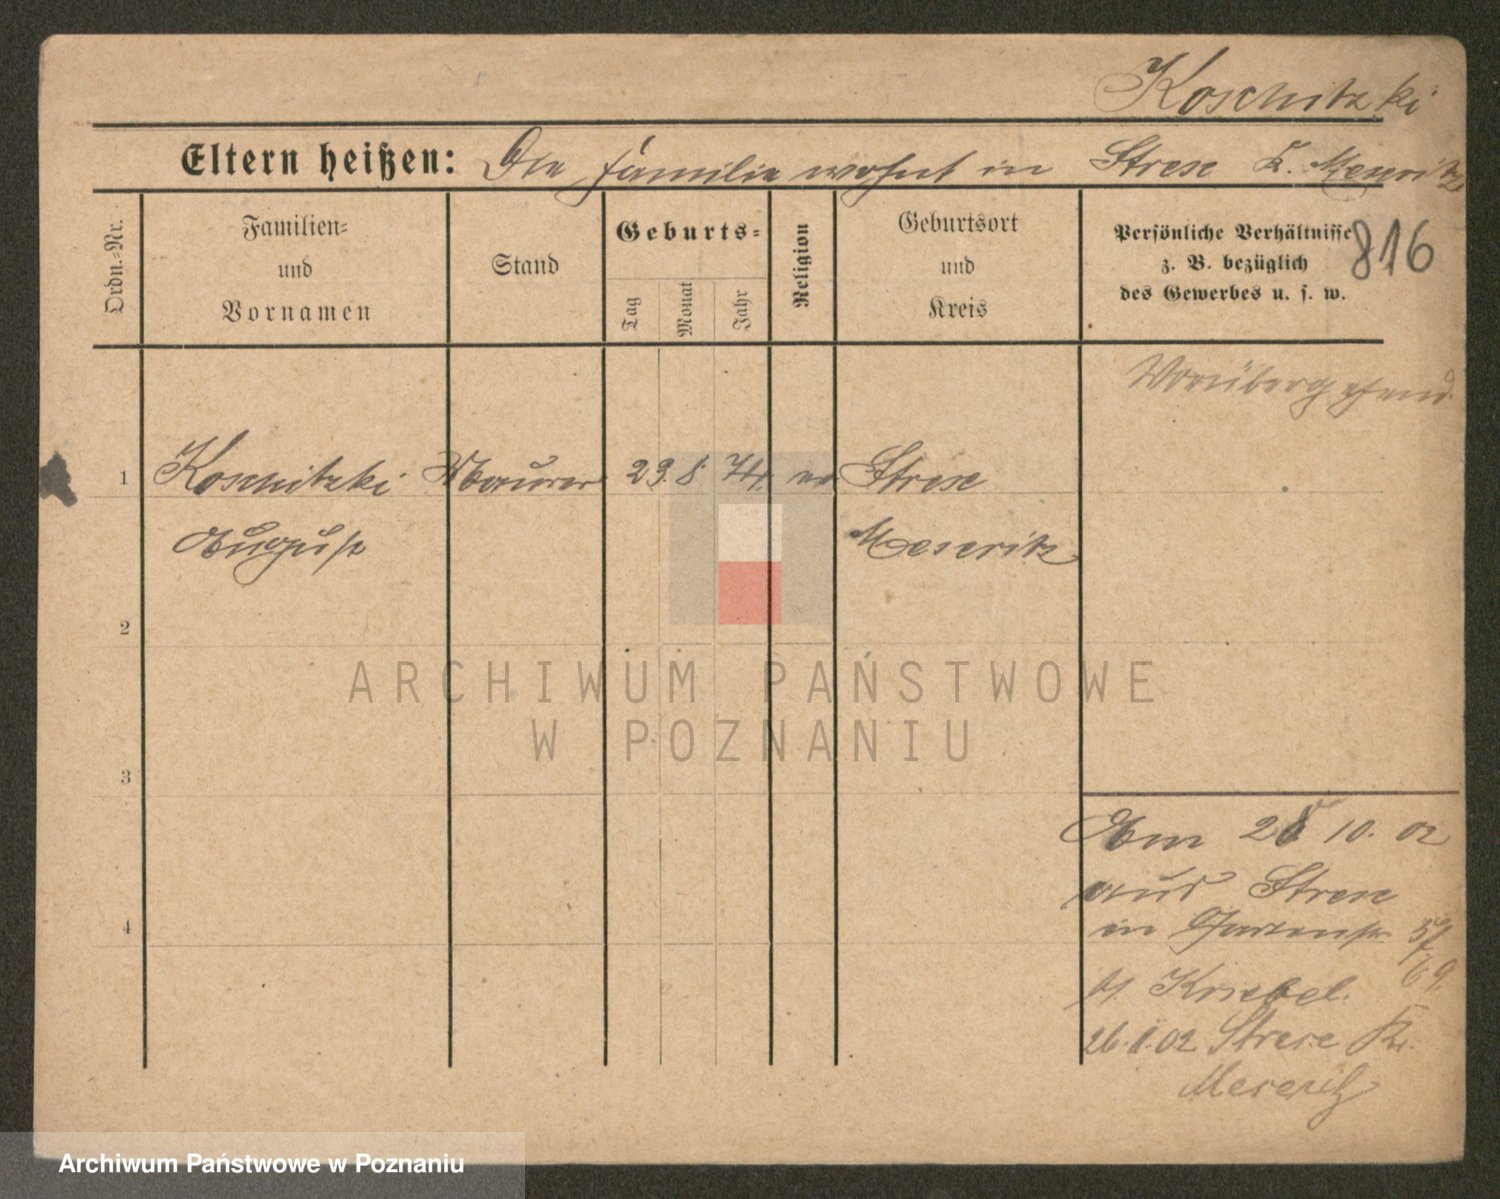 Koschitzki
Eltern heißen: Die Familie wohnt in Strese K. Meseritz
Ordn.-Nr.
Familien- und Vornamen
Stand
Geburts-
Tag
Monat
Jahr
Religion
Geburtsort und Kreis
Persönliche Verhältnisse
z. B. bezüglich
des Gewerbes u. s. w.
816
Vorübergehend
1 Koschitzki Maurer 23. 8 74. ev Strese
August Meseritz
2
3
4
Am 10. 02
aus Strese
in Gartenstr
Kriebel.
02 Strese Kr.
Meseritz
ARCHIWUM PAŃSTWOWE
W POZNANIU
Archiwum Państwowe w Poznaniu